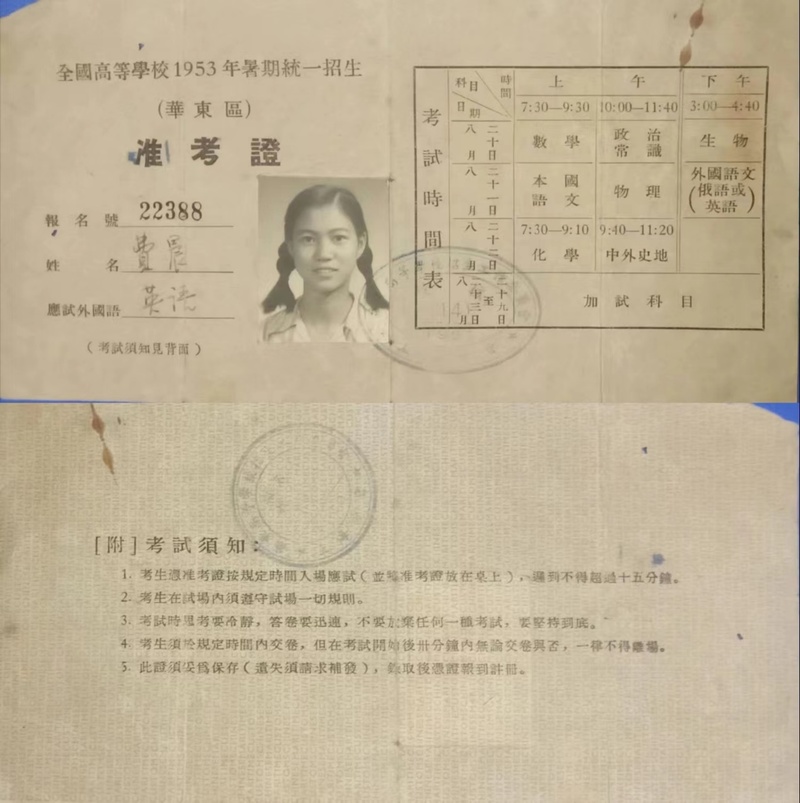 全國高等學校1953年暑期統一招生
(華東區)
准考證
報名號 22388
姓名 費晨
應試外國語 英語
(考試須知見背面)
考試時間表
科目 時間 日期 上午 下午
7:30—9:30 10:00—11:40 3:00—4:40
八月二十日 數學 政治常識 生物
八月二十一日 本國語文 物理 外國語文(俄語或英語)
7:30—9:10 9:40—11:20
八月二十二日 化學 中外史地
八月二十三日至二十九日 加試科目
[附]考試須知:
1. 考生憑准考證按規定時間入場應試(並將准考證放在桌上),遲到不得超過十五分鐘。
2. 考生在試場內須遵守試場一切規則。
3. 考試時思考要冷靜,答卷要迅速,不要放棄任何一種考試,要堅持到底。
4. 考生須於規定時間內交卷,但在考試開始後卅分鐘內無論交卷與否,一律不得離場。
5. 此證須妥爲保存(遺失須請求補發),錄取後憑證報到註冊。